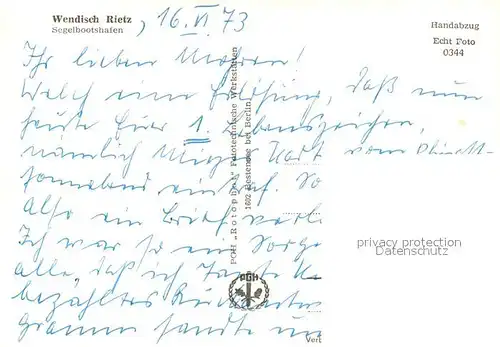 Wendisch Rietz
Segelbootshafen
, 16. VI. 73
Handabzug
Echt Foto
0344
Ihr lieben !
Welch eine Erlösung, daß nun
heute Euer 1. Lebenszeichen,
nämlich Kart vom
sonnabend eintraf. So
also ein Brief verl
Ich war so in Sorge
alle, daß ich Tante
bezahltes
gramm sandte
PGH „Rotophot" Fototechnische Werkstätten
1602 Bestensee bei Berlin
PGH
privacy protection
Datenschutz
Vert